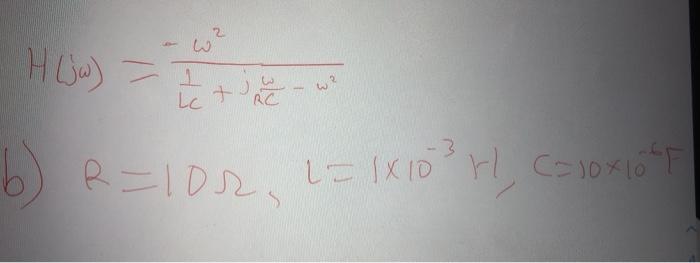 H(jω) = -ω² / (1/LC + j ω/RC - ω²)
b) R=10Ω, L=1×10⁻³ H, C=10×10⁻⁶F